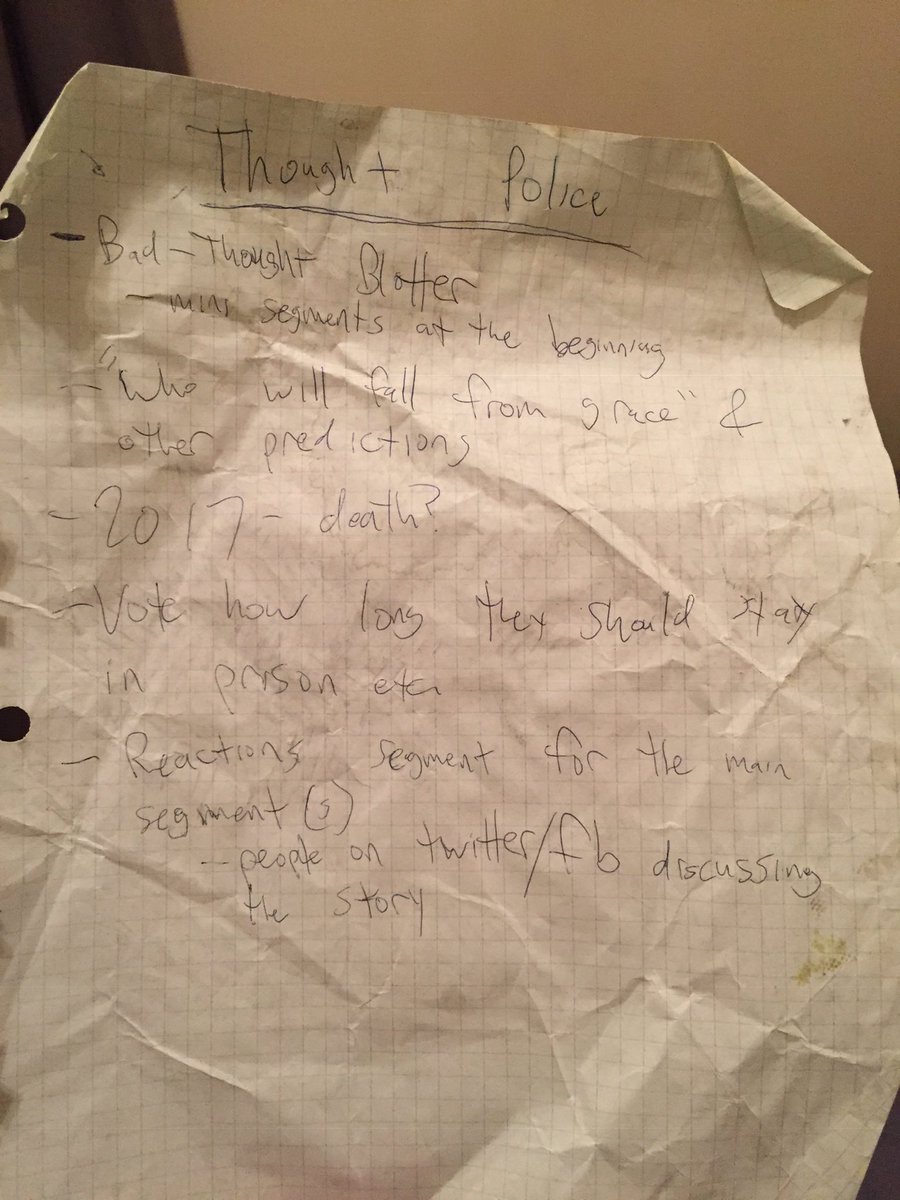 Thought Police
- Bad-Thought Blotter
- mini segments at the beginning
- "Who will fall from grace" &
other predictions
- 2017 - death?
- Vote how long they should stay
in prison etc
- Reactions segment for the main
segment(s)
- people on twitter/fb discussing
the story